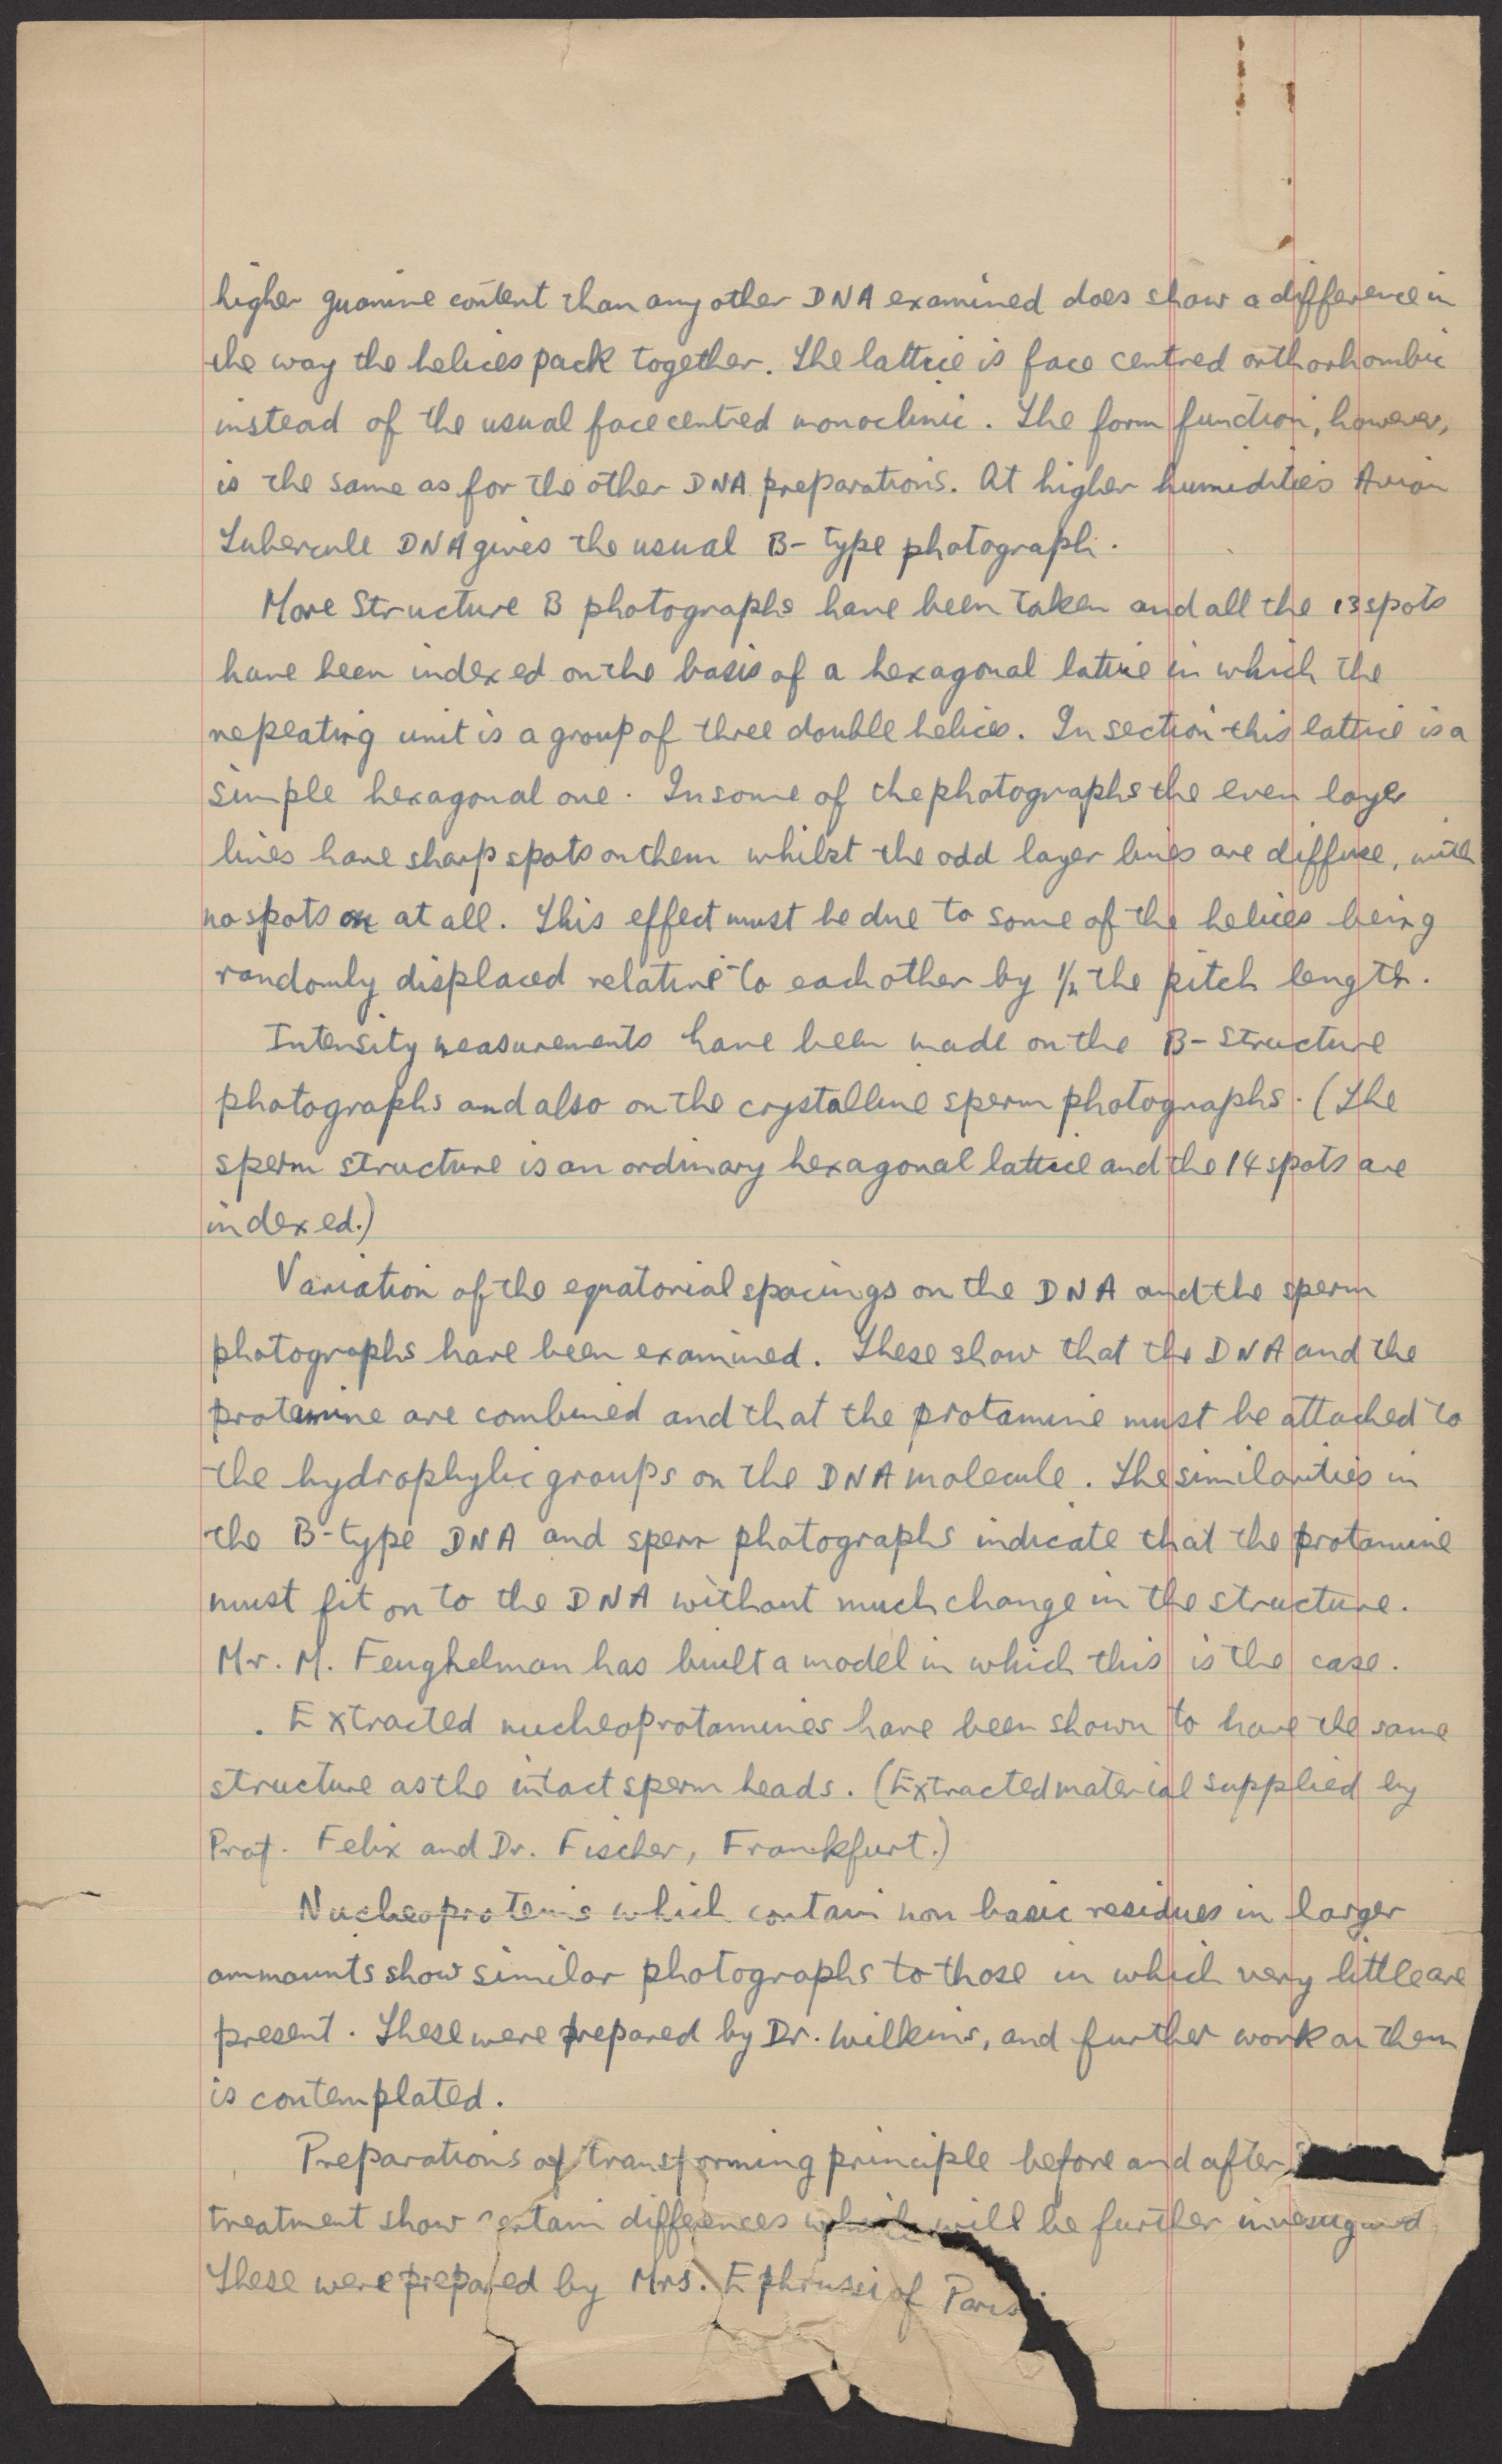 higher guanine content than any other DNA examined does show a difference in
the way the helices pack together. The lattice is face centred orthorhombic
instead of the usual face centred monoclinic. The form function, however,
is the same as for the other DNA preparations. At higher humidities Avian
Tubercule DNA gives the usual B-type photograph.
More Structure B photographs have been taken and all the 13 spots
have been indexed on the basis of a hexagonal lattice in which the
repeating unit is a group of three double helices. In section this lattice is a
simple hexagonal one. In some of the photographs the even layer
lines have sharp spots on them whilst the odd layer lines are diffuse, with
no spots on at all. This effect must be due to some of the helices being
randomly displaced relative to each other by 1/2 the pitch length.
Intensity measurements have been made on the B-Structure
photographs and also on the crystalline sperm photographs. (The
sperm structure is an ordinary hexagonal lattice and the 14 spots are
indexed.)
Variation of the equatorial spacings on the DNA and the sperm
photographs have been examined. These show that the DNA and the
protamine are combined and that the protamine must be attached to
the hydrophylic groups on the DNA molecule. The similarities in
the B-type DNA and sperm photographs indicate that the protamine
must fit on to the DNA without much change in the structure.
Mr. M. Feughelman has built a model in which this is the case.
. Extracted nucleoprotamines have been shown to have the same
structure as the intact sperm heads. (Extracted material supplied by
Prof. Felix and Dr. Fischer, Franckfurt.)
Nucleoproteins which contain non basic residues in larger
ammounts show similar photographs to those in which very little are
present. These were prepared by Dr. Wilkins, and further work on them
is contemplated.
Preparations of transforming principle before and after
treatment show certain differences which will be further
These were prepared by Mrs. Ephrussi of Paris.